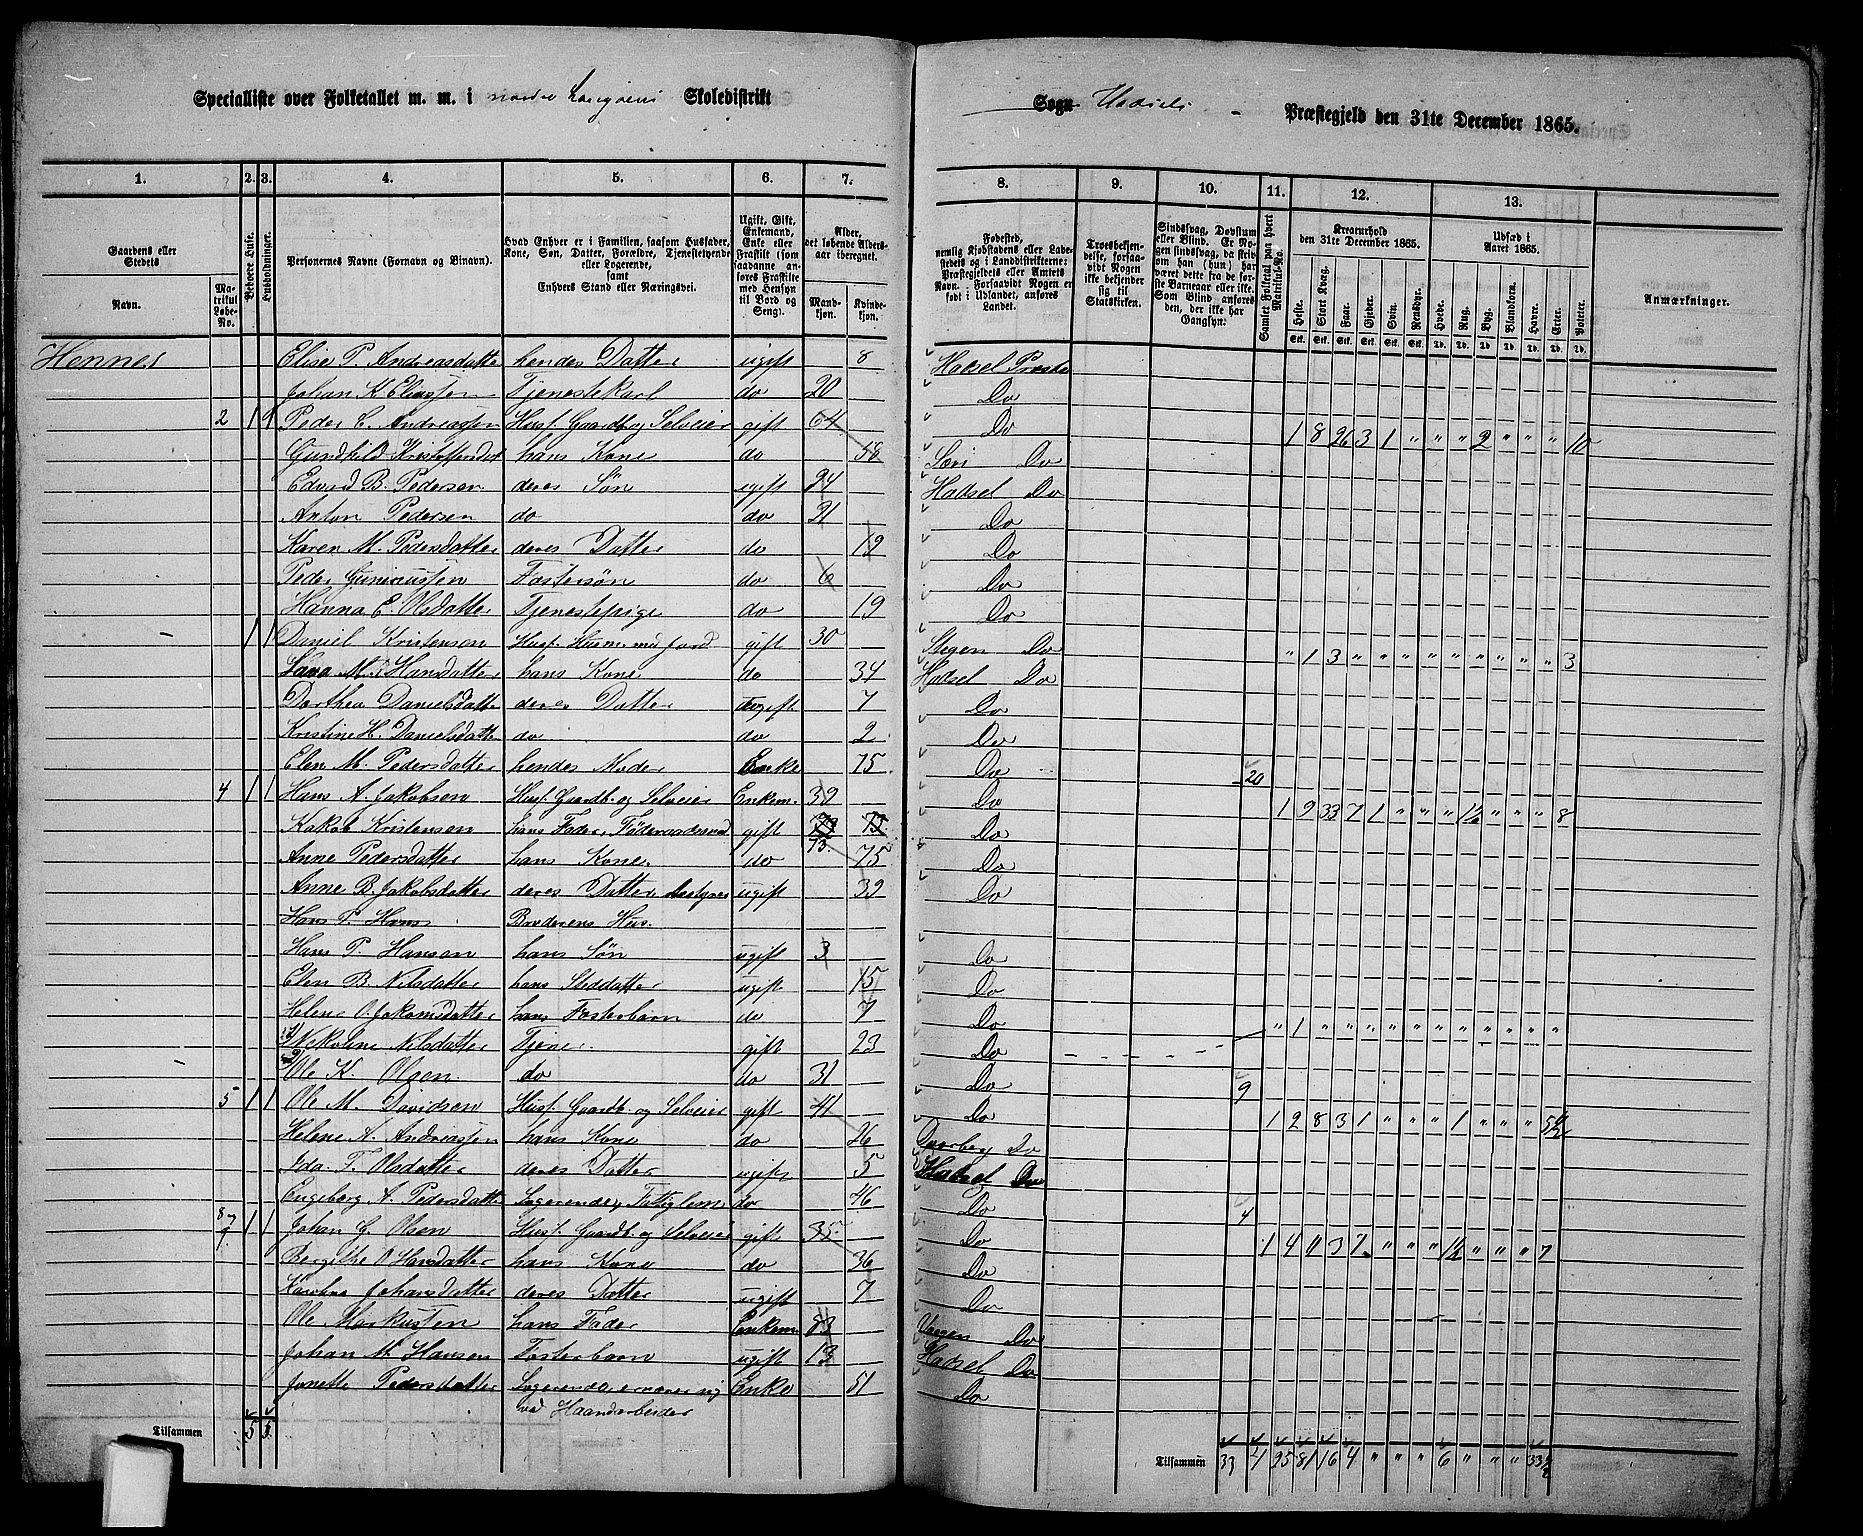 Specialliste over Folketallet m. m. i nordre Langøens Skoledistrikt
Sogn Hadsels Præstegjeld den 31te December 1865.
1. 2. 3. 4. 5. 6. 7.
8. 9. 10. 11. 12. 13.
Gaardens eller Stedets Navn.
Matrikul Løbe-No.
Beboede Huse.
Husholdninger.
Personernes Navne (Fornavn og Binavn).
Hvad Enhver er i Familien, saasom Husfader, Kone, Søn, Datter, Forældre, Tjenestetyende eller Logerende, samt Enhvers Stand eller Næringsvei.
Ugift, Gift, Enkemand, Enke eller Fraskilt (som saadanne anføres Fraskilte med Hensyn til Bord og Seng).
Alder, det løbende Alders-aar iberegnet.
Mand-kjøn. Kvinde-kjøn.
Fødested, nemlig Kjøbstadens eller Ladestedets og i Landdistrikterne: Præstegjeldets eller Amtets Navn. Forsaavidt Nogen er født i Udlandet, anføres Landet.
Troesbekjendelse, forsaavidt Nogen ikke bekjender sig til Statskirken.
Sindssvag, Døvstum eller Blind. Er Nogen sindssvag, da skrives, om han (hun) har været dette fra de første Barneaar eller ikke. Som Blind anføres den, der ikke har Gangsyn.
Samlet Folketal paa hvert Matrikul-No.
Kreaturhold den 31te December 1865.
Heste. Stort Kvæg. Faar. Gjeder. Svin. Rensdyr.
Udsæd i Aaret 1865.
Hvede. Rug. Byg. Blandkorn. Havre. Erter. Poteter.
Anmærkninger.
Hennes Elise P. Andreasdatter hendes Datter ugift 8 Hadsel Præste
Johan K. Eliassen Tjenestekarl do 20 Do
2 1 1 Peder C. Andreassen Husf. Gaardb. og Selveier gift 64 Do 1 8 26 3 1 " " " 2 " " " 10
Gundhild Kristoffersdat hans Kone do 58 Do
Edvard B. Pedersen deres Søn ugift 24 Hadsel Do
Anton Pedersen do do 21 Do
Karen M. Pedersdatter deres Datter do 19 Do
Peder Fostersøn do 6 Do
Hanna E. Olsdatter Tjenestepige do 19 Do
1 1 Daniel Kristensen Husf. Husm. med Jord gift 30 Stegen Do " 1 3 " " " " " " " " " 3
M. Hansdatter hans Kone do 34 Hadsel Do
Dorthea Danielsdatte deres Datter ugift 7 Do
Kristine H. Danielsdatte do do 2 Do
Elen M. Pedersdatter hendes Moder Enke 75 Do 20
4 1 1 Hans A. Jakobsen Husf. Gaardb. og Selveier Enkem. 39 Do 1 9 33 7 1 " " " 1½ " " " 8
Kakob Kristensen hans Fader, Føderaadsmand gift 73 Do
Anne Pedersdatter hans Kone do 75 Do
Anne B. Jakobsdatter deres Datter, bestyrer ugift 39 Do
Hans P. Hans Broderens Hus.
Hans P. Hansen hans Søn ugift 3 Do
Elen B. Nilsdatter hans Steddatter ugift 15 Do
Helene O. Jakomsdatter hans Fosterbarn do 7 Do " 1 " " " " " " " " " "
Nekoline Nilsdatter Tjener gift 23 Do
Ole K. Olsen do do 31 Do 9
5 1 1 Ole M. Davidsen Husf. Gaardb. og Selveier gift 41 Do 1 2 8 3 1 " " " 1 " " " 5½
Helene A. Andreassen hans Kone do 26 Do
Ida T. Olsdatter deres Datter ugift 5 Hadsel Do
Engeborg A. Pedersdatte Logerende, Fattiglem do 46 Do 4
7 1 1 Johan G. Olsen Husf. Gaardb. og Selveier gift 35 Do 1 4 11 3 7 " " " 1½ " " " 7
Bergithe O Hansdatter hans Kone do 36 Do
Karoline Johansdatter deres Datter ugift 7 Do
Ole Markussen hans Fader Enkem 83 Vaagen Do
Johan M. Hansen Fosterbarn ugift 13 Hadsel Do
Jonette Pedersdatter Logerende, ernærer sig Enke 51 Do
ved Haandarbeider
Tilsammen 5 5
Tilsammen 33 4 25 81 16 4 " " " 6 " " " 33½